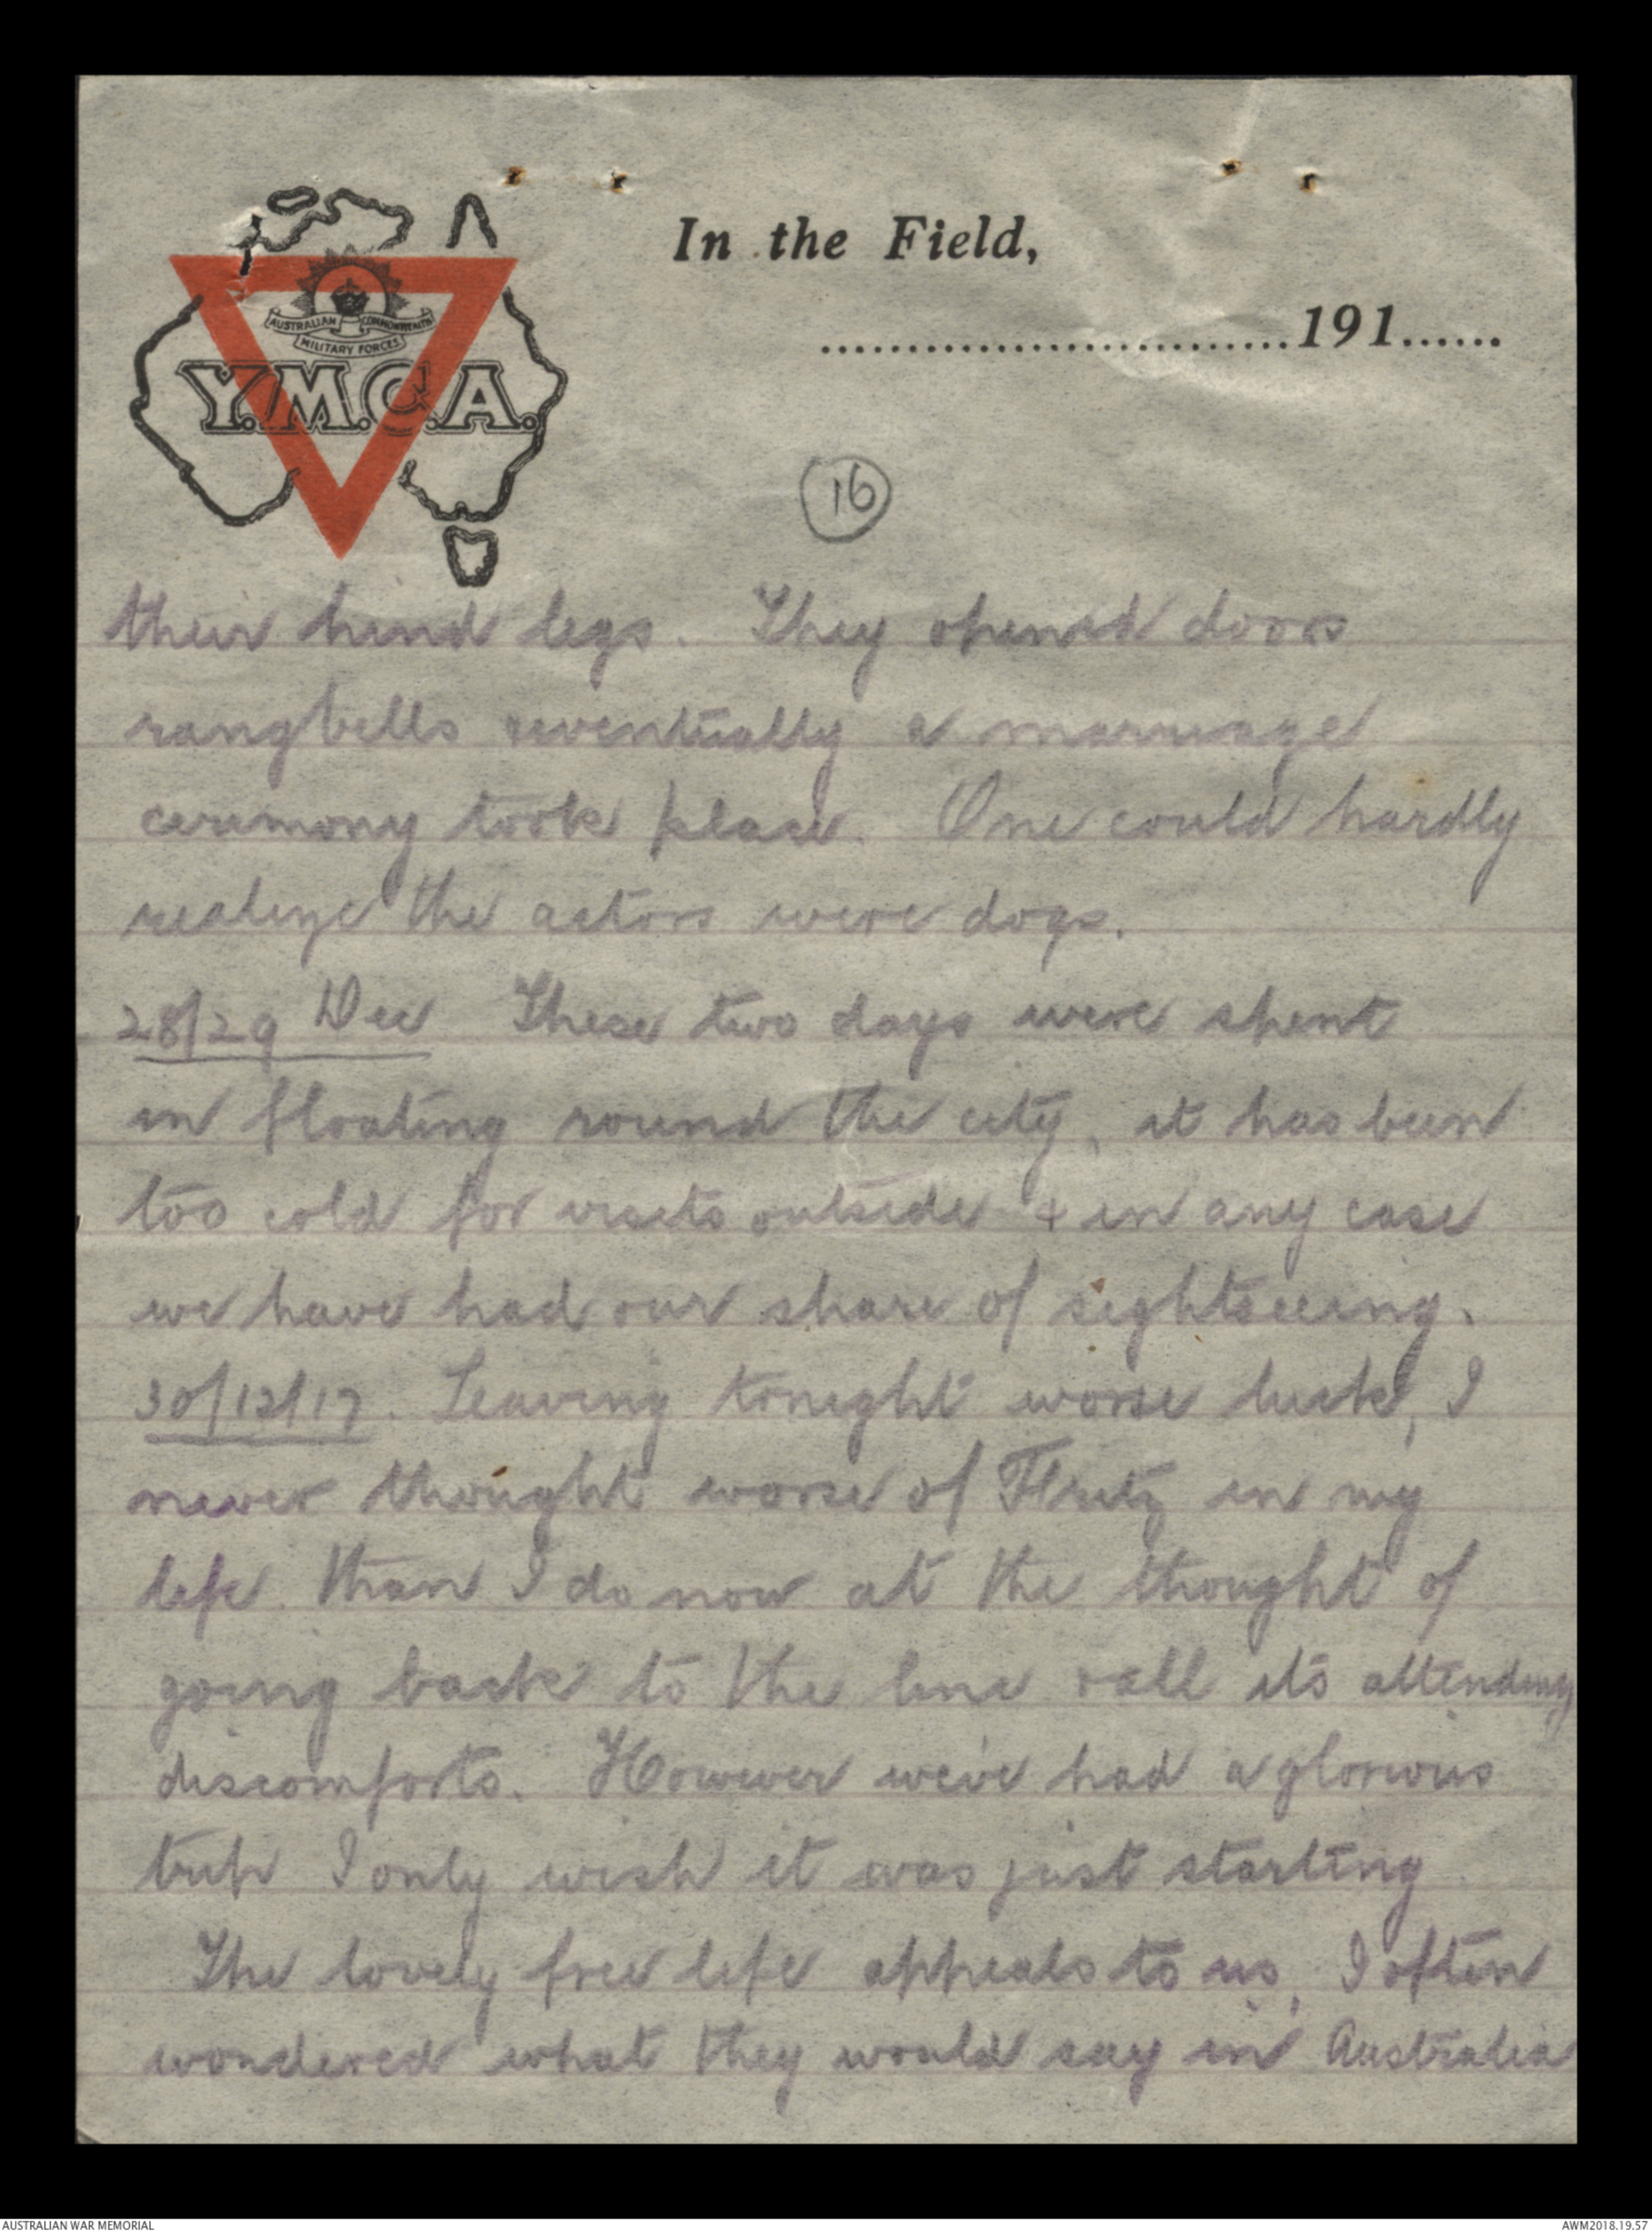 In the Field,
AUSTRALIAN COMMONWEALTH
MILITARY FORCES
Y.M.C.A.
............................191......
16
their hind legs. They opened doors
rang bells & eventually a marriage
ceremony took place. One could hardly
realize the actors were dogs.
28/29 Dec These two days were spent
in floating round the city, it has been
too cold for visits outside & in any case
we have had our share of sightseeing.
30/12/17. Leaving tonight worse luck, I
never thought worse of Fritz in my
life than I do now at the thought of
going back to the line & all its attending
discomforts. However we've had a glorious
trip I only wish it was just starting
The lovely free life appeals to us, I often
wondered what they would say in Australia
AUSTRALIAN WAR MEMORIAL
AWM2018.19.57